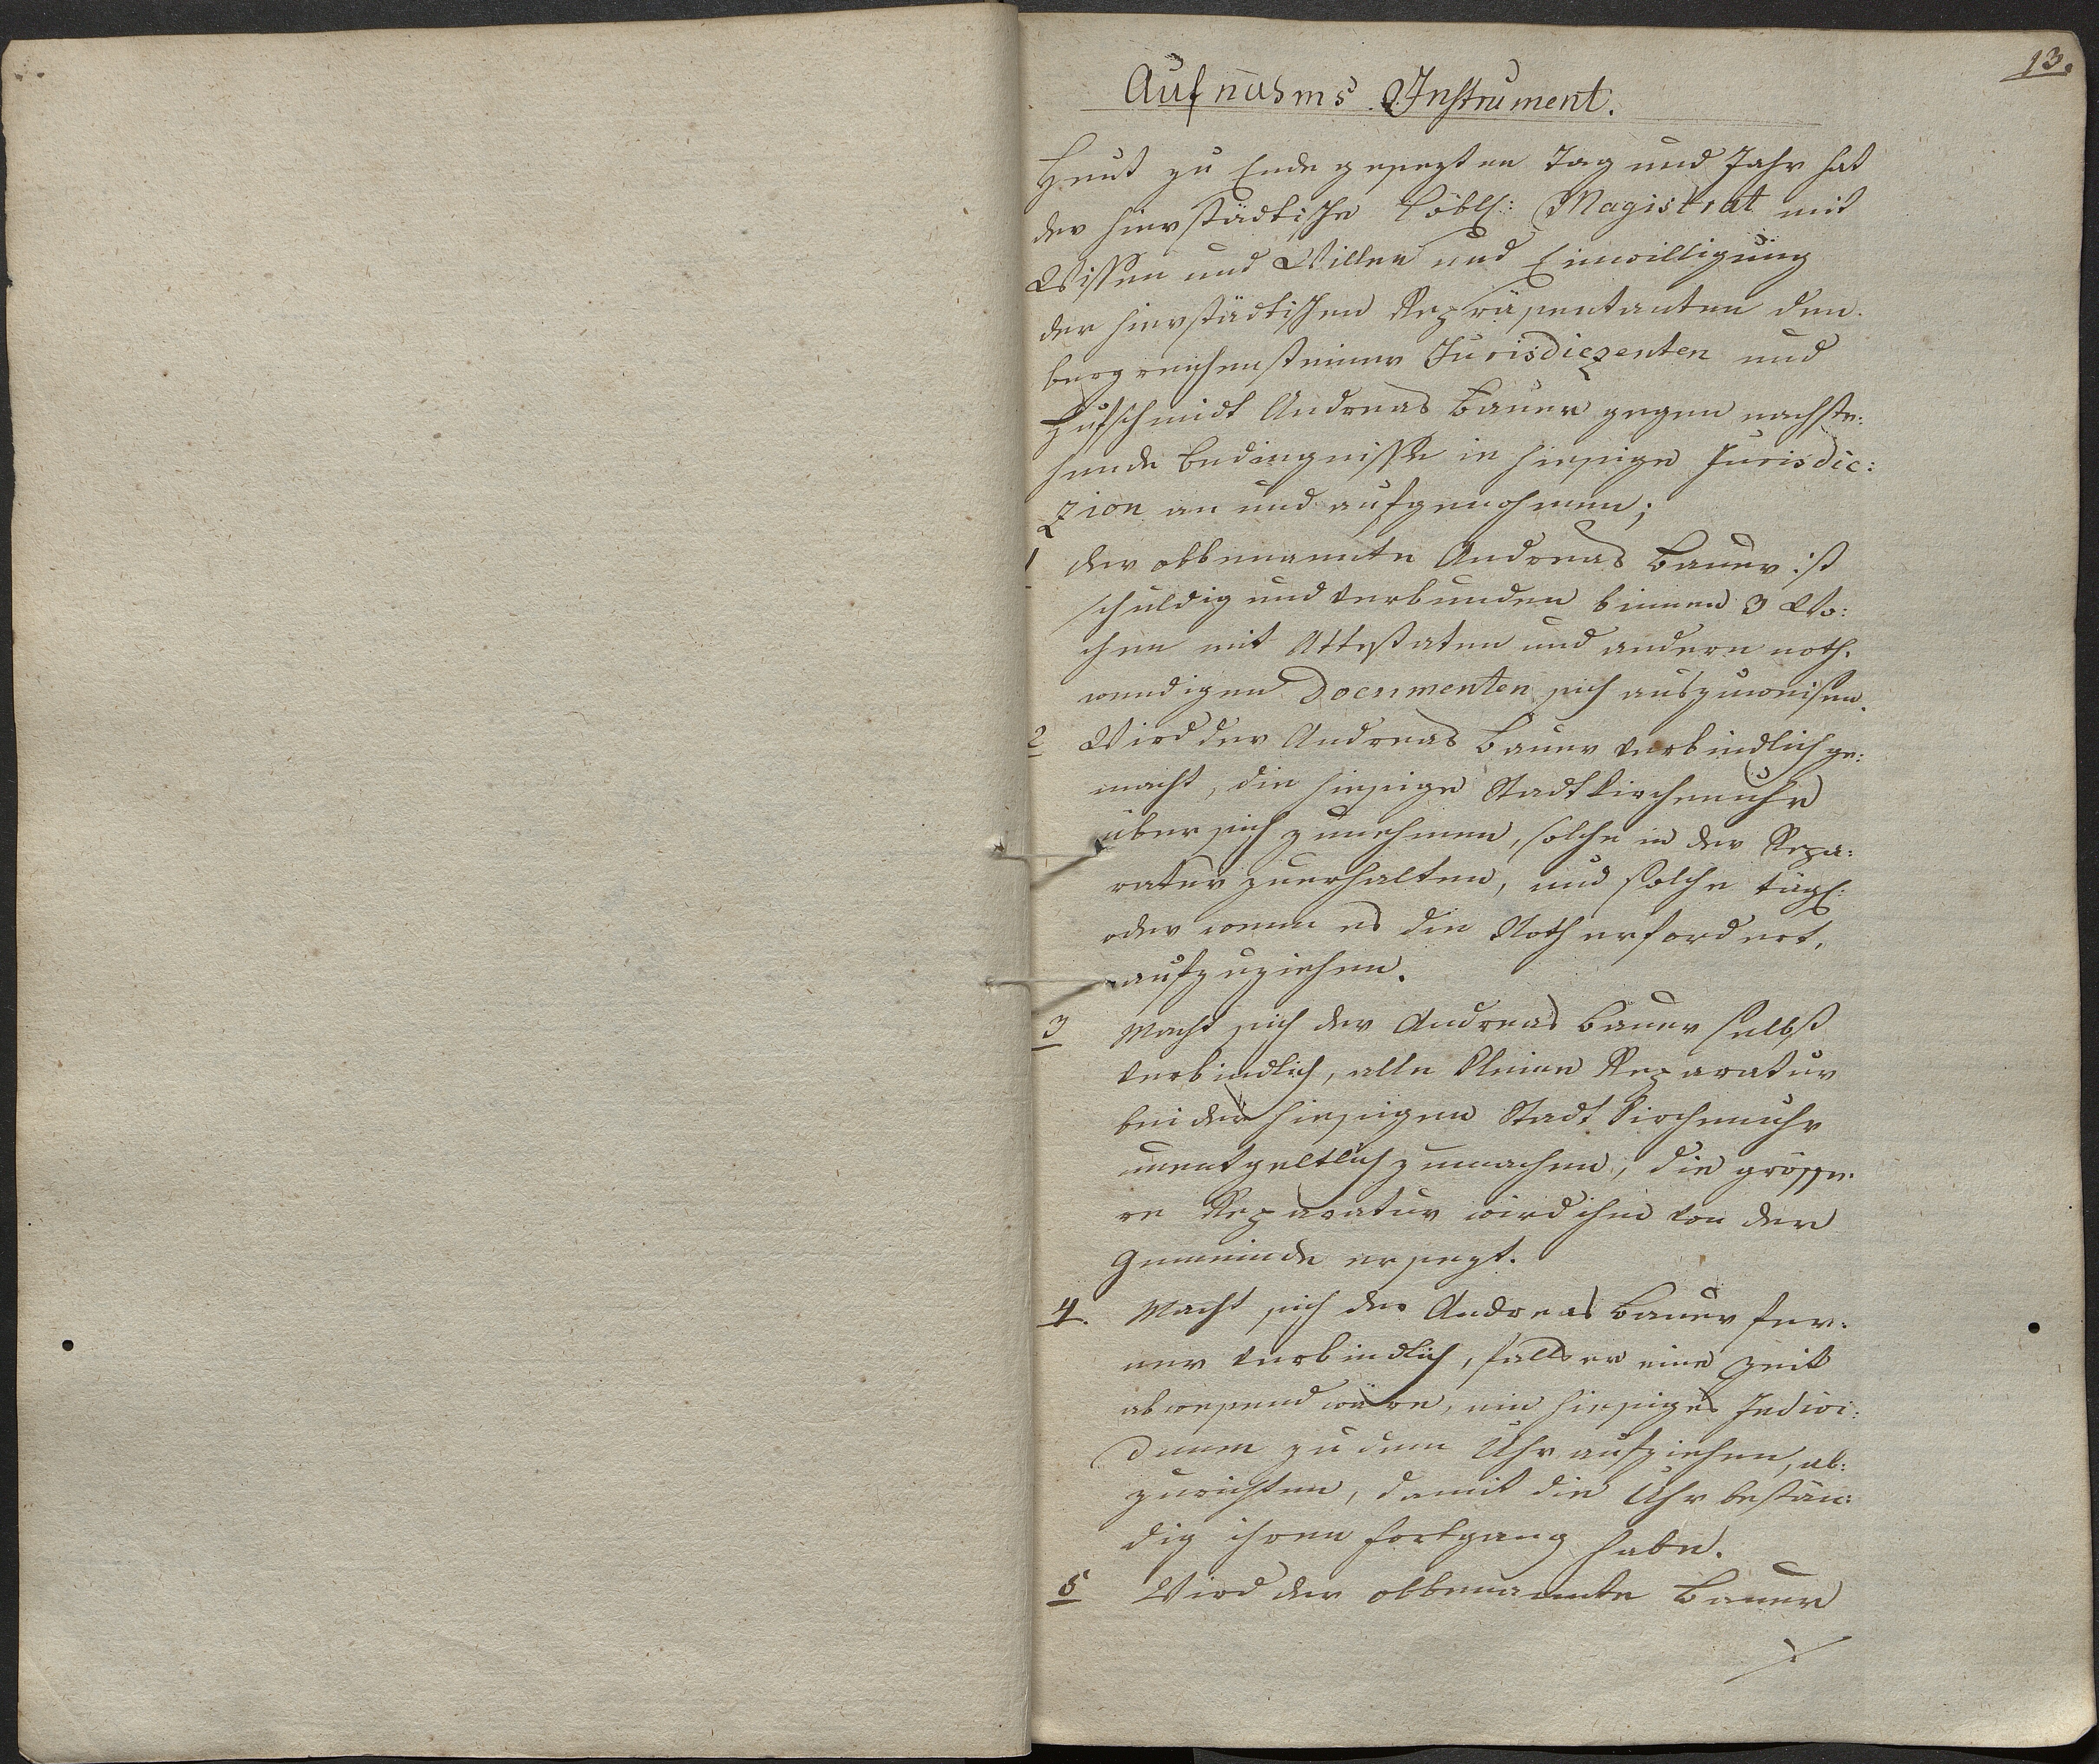 13.
Aufnahms Instrument.
Heut zu Ende gesezten Tag und Jahr hat
der hierstädtische Löbl: Magistrat mit
Wissen und Willen und Einwilligung
der hierstädtischen Repräsentanten den
bergreichensteiner Jurisdiczenten und
Hufschmidt Andreas Bauer gegen nachste:
hende Bedingnisse in hiesige Jurisdic:
zion an und aufgenohmen;
1 der obbenannte Andreas Bauer ist
schuldig und verbunden binnen 3 Wo:
chen mit Attestaten und andern noth:
wendigen Documenten sich auszuweisen.
2 Wird der Andreas Bauer verbindlich ge:
macht, die hiesige Stadtkirchenuhr
über sich zunehmen, solche in der Repa:
ratur zuerhalten, und solche tägl:
oder wenn es die Noth erfordert,
aufzuziehen.
3 Macht sich der Andreas Bauer selbst
verbindlich, alle kleine Reparatur
bei der hiesigen Stadt Kirchenuhr
unentgeltlich zumachen, die grösse:
re Reparatur wird ihm von der
Gemeinde ersezt.
4. Macht sich der Andreas Bauer fer:
ner verbindlich, falls er eine Zeit
abwesend wäre, ein hiesiges Indivi:
duum zu dem Uhr aufziehen, ab:
zurichten, damit die Uhr bestän:
dig ihren Fortgang habe.
5 Wird der obbenannte Bauer